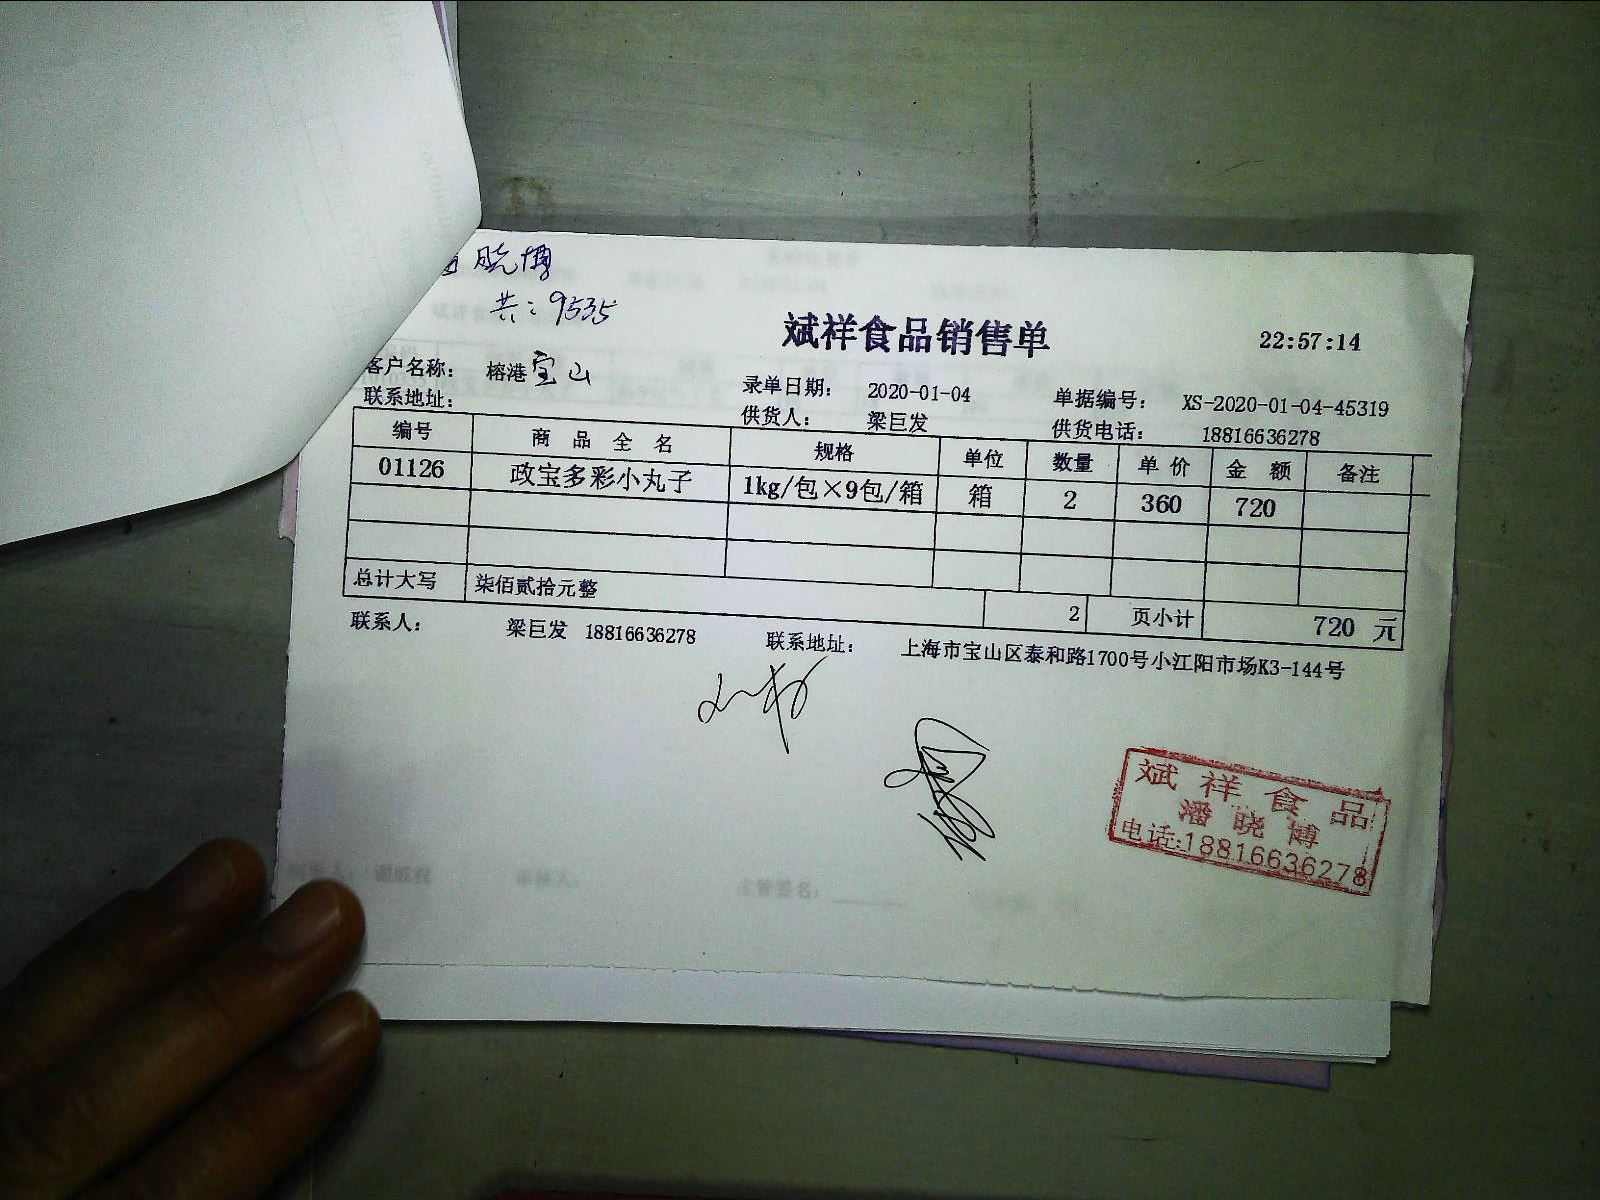 晓博
共：9535
斌祥食品销售单 22:57:14
客户名称： 榕港宝山 录单日期： 2020-01-04 单据编号： XS-2020-01-04-45319
联系地址： 供货人： 梁巨发 供货电话： 18816636278
编号 商品全名 规格 单位 数量 单价 金额 备注
01126 政宝多彩小丸子 1kg/包×9包/箱 箱 2 360 720
总计大写 柒佰贰拾元整 2 页小计 720 元
联系人： 梁巨发 18816636278 联系地址： 上海市宝山区泰和路1700号小江阳市场K3-144号
斌祥食品
潘晓博
电话:18816636278